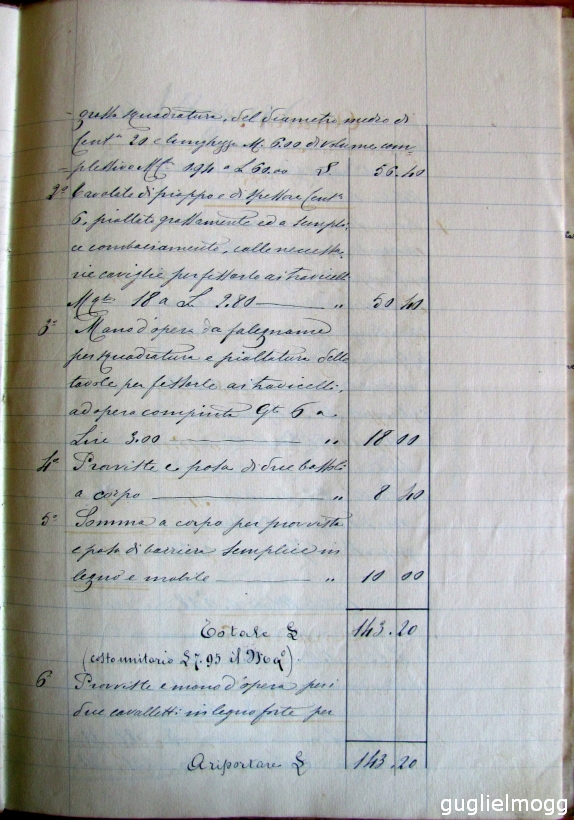 grossa squadratura, del diametro medio di
Cent.ⁱ 20 e lunghezza M. 6.00 di volume com-
plessivo Mᶜ 0.94 a L 60.00 £ 56.40
2° Tavolato di pioppo e di spessore Cent.ⁱ
6, piallato grossamente ed a sempli-
ce combaciamento, colle necessa-
rie caviglie per fissarle ai travicelli
Mqᵗⁱ 18 a L. 2.80 " 50 40
3° Mano d'opera da falegname
per squadratura e piallatura delle
tavole per fissarle ai travicelli,
ad opera compiuta Gᵗᵉ 6 a
Lire 3.00 " 18 00
4° Provviste e posa di due
a corpo " 8 40
5° Somma a corpo per provvista
e posa di barriera semplice in
legno e mobile " 10 00
Totale £ 143.20
(costo unitario £ 7.95 il Mq°)
6 Provviste e mano d'opera per
due cavalletti in legno forte per
A riportare £ 143.20
guglielmogg